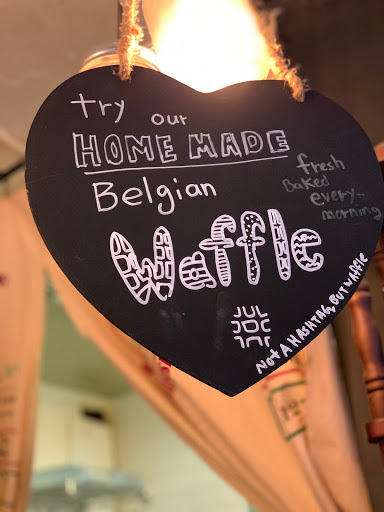 try our
HOME MADE
Belgian
Waffle
fresh
Baked
every-
morning
NOT A HASHTAG, BUT WAFFLE